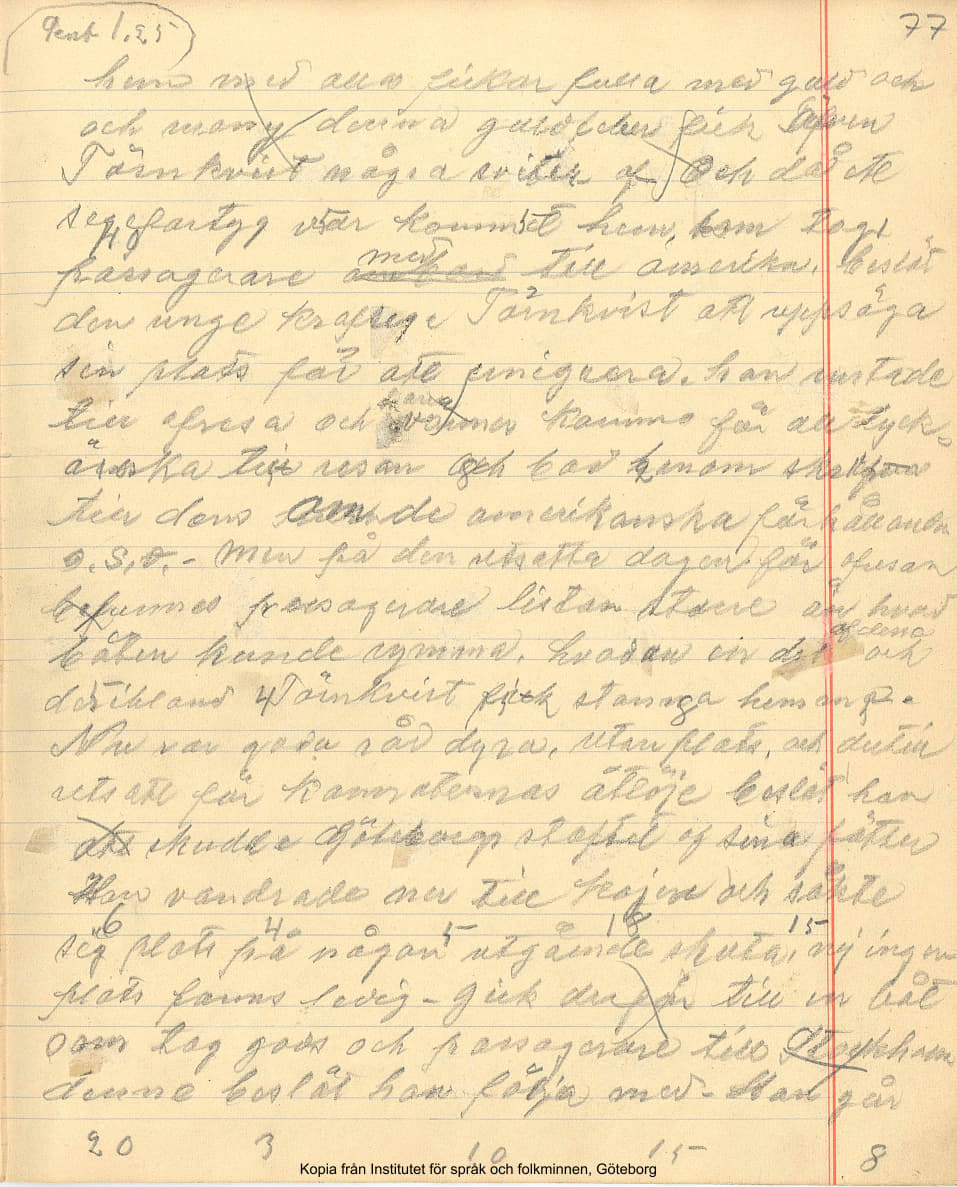 77
hem med alla fickor fulla med guld och
och mony denna guldfeber fick även
Törnkvist några sviter af. Och då ett
segelfartyg var kommit hem, som tog
passagerare med till amerika, beslöt
den unge Törnkvist att uppsöga
sin plats för att emigrera. han rustade
till afresa och kommo för att lyck-
önska till resan och bad honom
till dem om de amerikanska förhållanden
o.s.v. - Men på den utsatta dagen för afresan
befunnes passagerare listan större än hvad
båten kunde rymma, hvadan en del af dena och
däribland Törnkvist fick stanna hemma.
Nu var goda råd dyra, utan plats, och dertill
utsatt för kamraternas åtlöje beslöt han
att skudda Göteborgs stoft af sina fötter
Han vandrade ner till kajen och sökte
sig plats på någon utgående skuta, nej ingen
plats fanns ledig - Gick derför till en båt
som tog gods och passagerare till Stockholm
denne beslöt han följa med - Han går
20 3 10 15 8
Kopia från Institutet för språk och folkminnen, Göteborg